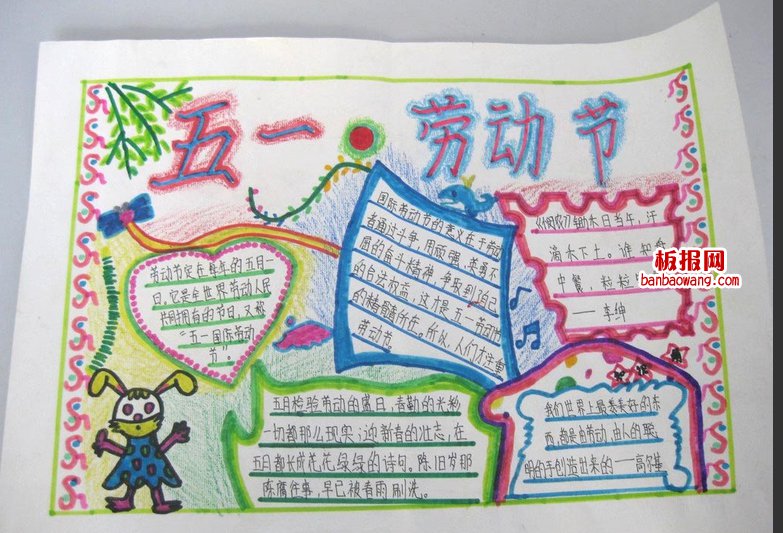 五一 劳动节
劳动节定在每年的五月一
日，它是全世界劳动人民
共同拥有的节日，又称
“五一国际劳动
节”。
国际劳动节的意义在于劳动
者通过斗争，用顽强、英勇不
屈的奋斗精神，争取到了自己
的合法权益，这才是五一劳动节
的精髓所在。所以，人们才注重
劳动节
《悯农》锄禾日当午，汗
滴禾下土。谁知盘
中餐，粒粒
——李绅
板报网
banbaowang.com
五月检验劳动的盛日，春勤的光勉
一切都那么现实；迎新春的壮志，在
五月都长成花花绿绿的诗句。陈旧岁那
陈腐往事，早已被春雨刷洗。
我们世界上最美好的东
西，都是由劳动、由人的聪
明的手创造出来的——高尔基